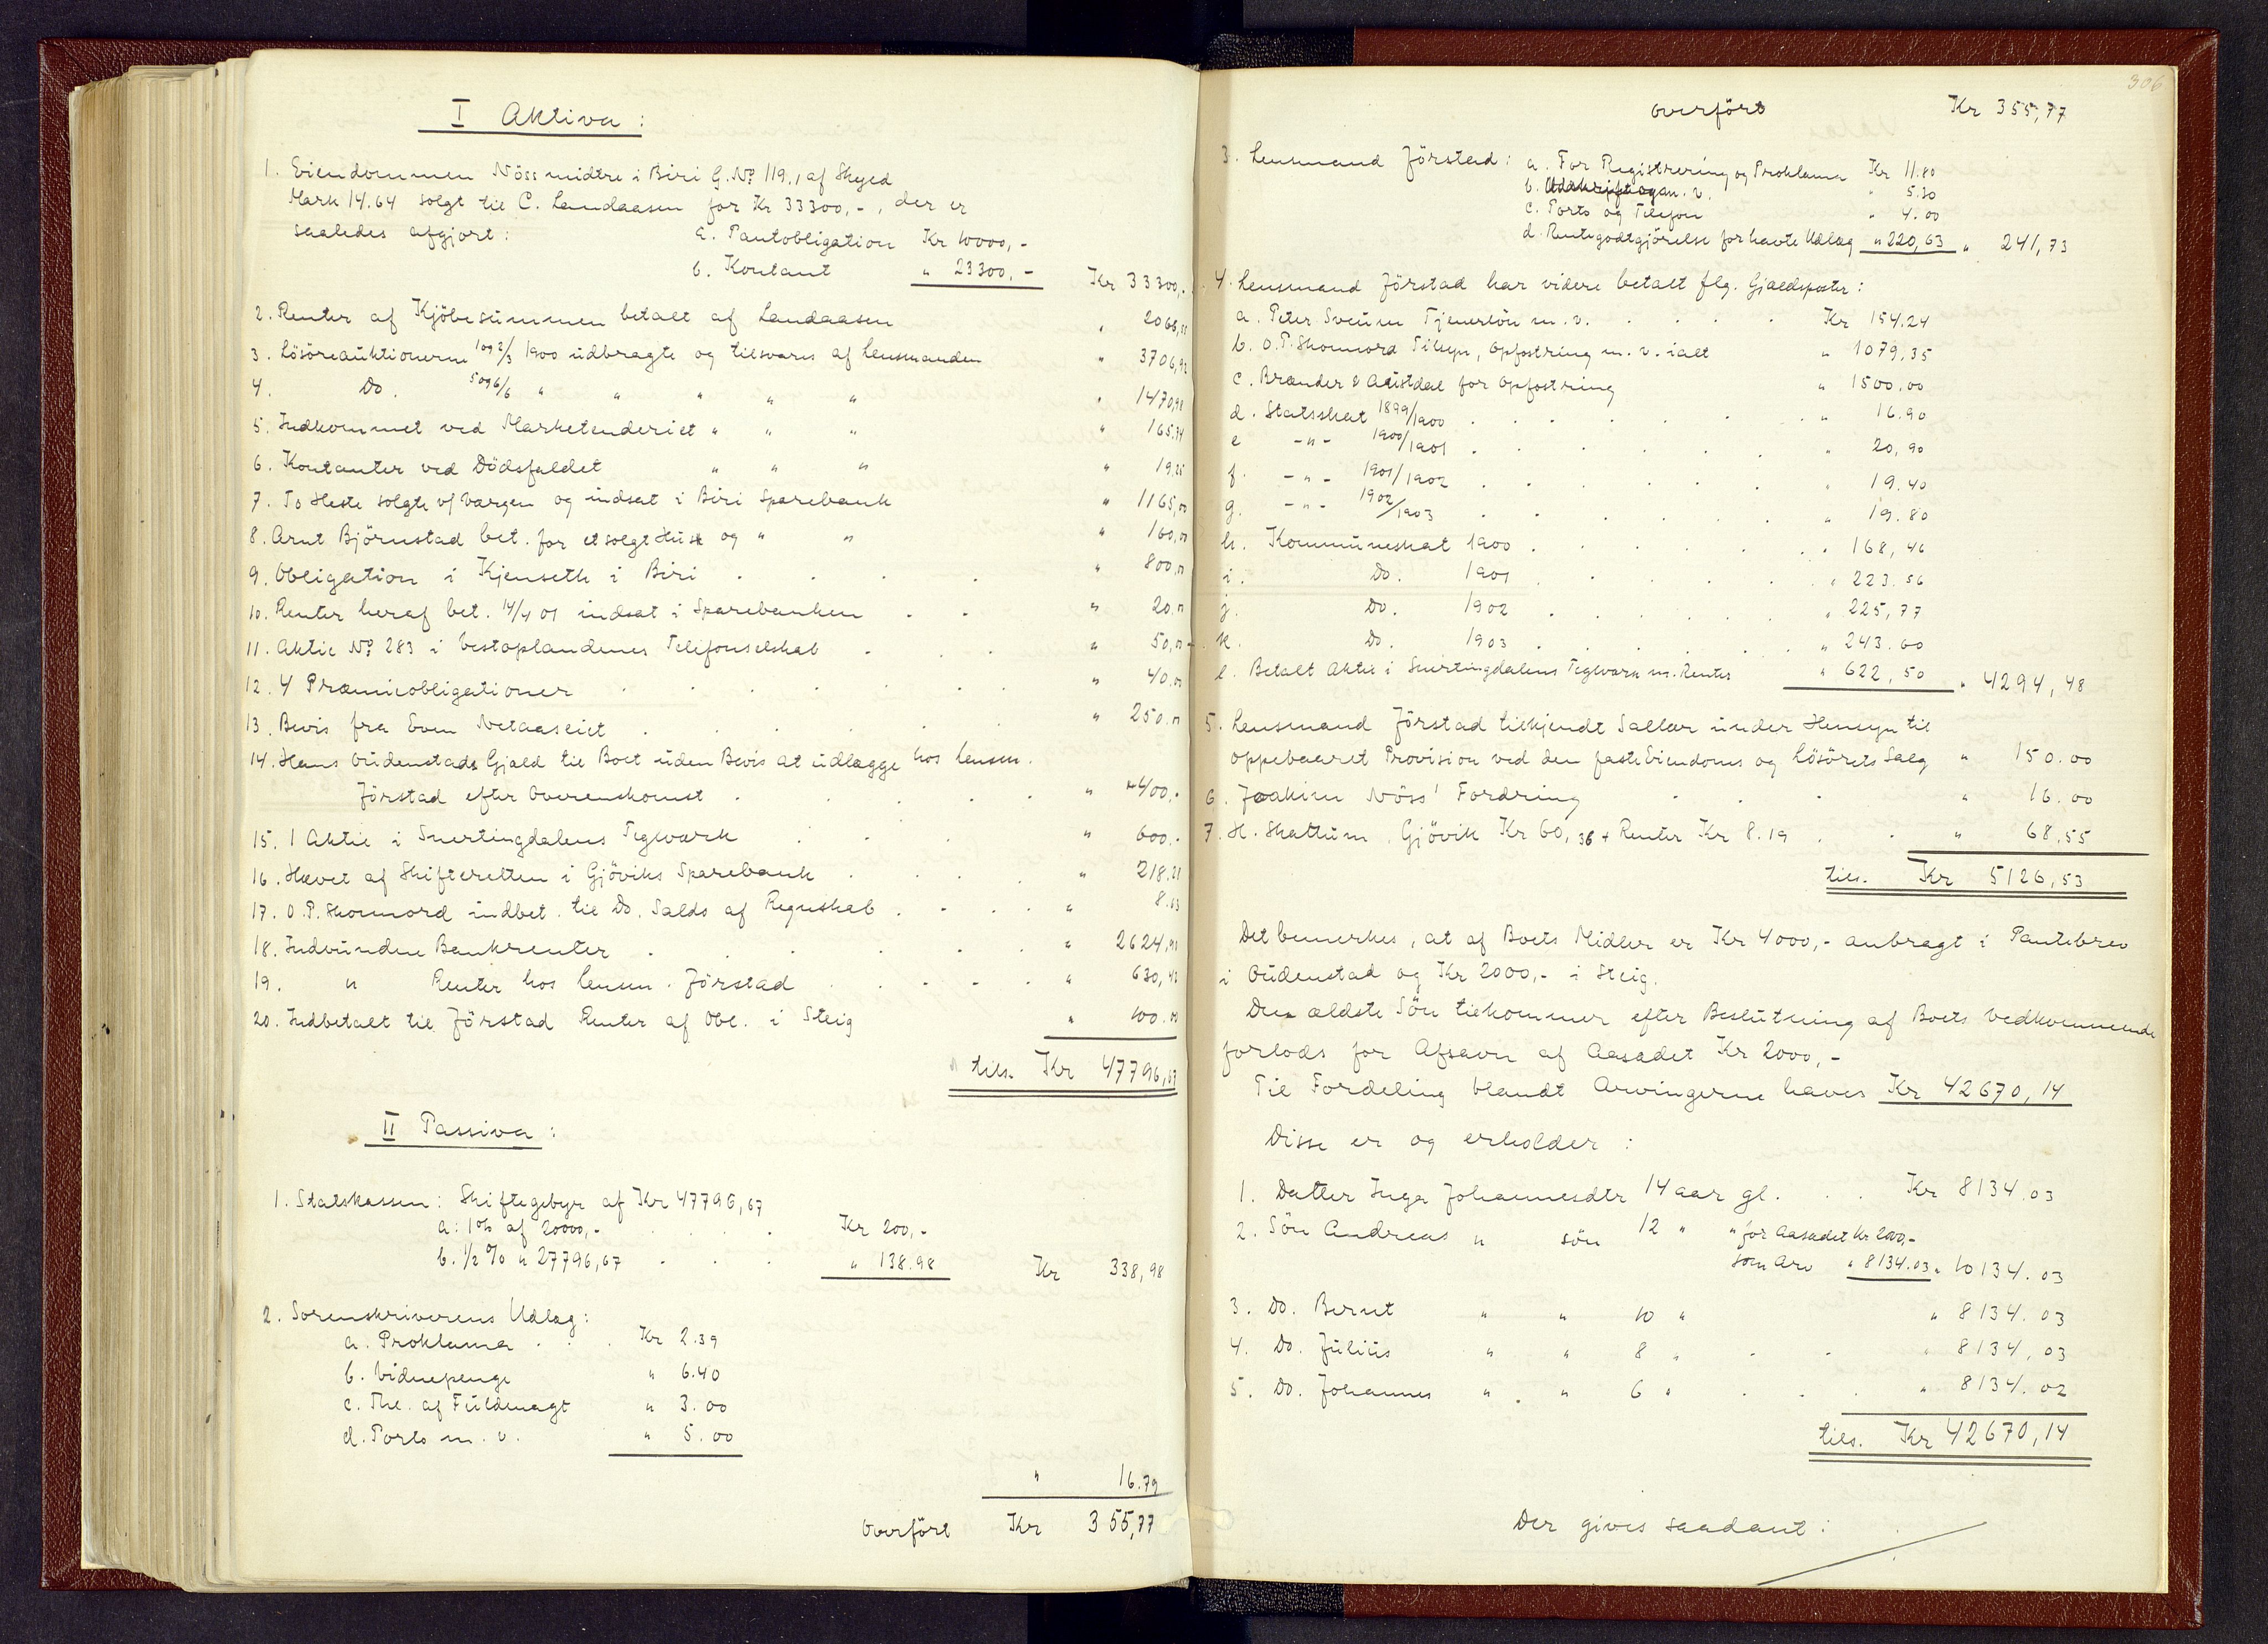 I Aktiva:
1. Eiendommen Nöss midtre i Biri G.No 119,1 af Skyld
Mark 14.64 solgt til C. Landaasen for Kr 33300,-, der er
saaledes afgjort: a. Pantobligation Kr 10000,-
b. Kontant " 23300,- Kr 33300,-
2. Renter af Kjöbesummen betalt af Landaasen "
3. Lösöreauktionerne 1 og 2/3 1900 udbragte og tilsvares af Lensmanden " 3706,92
4. Do. 5 og 6/6 " " " " " " 1470,98
5. Indkommet ved Marketenderiet " " " " 165.74
6. Kontanter ved Dödsfaldet " " " " 19.25
7. To Heste solgte v/ Værgen og indsat i Biri Sparebank " 1165,00
8. Arnt Björnstad bet. for et solgt Hus og " " " 160,00
9. Obligation i Kjenseth i Biri . . . . " 800,00
10. Renter heraf bet. 14/4 01 indsat i Sparebanken . . " 20.00
11. Aktie No 283 i Vestoplandenes Telefonselskab . . . " 50,00
12. 4 Præmieobligationer . . . . . . " 40.00
13. Bevis fra Even Netaaseiet . . . . . " 250.00
14. Hans Oudenstads Gjæld til Boet uden Bevis at udlægge hos Lensm.
Förstad efter Overenskomst . . . . . " 400,-
15. 1 Aktie i Snertingdalens Teglværk . . . " 600.-
16. Hævet af Skifteretten i Gjöviks Sparebank . . . . " 218.21
17. O.P. Skonnord indbet. til Do. Saldo af Regnskab . . . . "
18. Indvundne Bankrenter . . . . . . " 2624,91
19. " Renter hos Lensm. Förstad . . . . . " 630,43
20. Indbetalt til Förstad Renter af Obl. i Steig " 100.00
tils. Kr 47796,67
II Passiva:
1. Statskassen: Skiftegebyr af Kr 47796,67
a: 1% af 20000,- . . . . Kr 200,-
b. 1/2 % " 27796,67 . . . " 138.98 Kr 338,98
2. Sorenskriverens Udlæg:
a. Proklama . . . Kr 2.39
b. Vidnepenge " 6.40
c. Thl. af Fuldmagt " 3.00
d. Porto m. v. " 5.00
" 16.79
Overfört Kr 355,77
306
overfört Kr 355,77
3. Lensmand Förstad: a. For Registrering og Proklama Kr 11.80
b. Udskrift og m. v. " 5.30
c. Porto og Telefon " 4.00
d. Rentegodtgjörelse for havte Udlæg " 220,63 " 241,73
4. Lensmand Förstad har videre betalt flg. Gjældsposter:
a. Peter Sveum Tjenerlön m. v. . . . . Kr 154.24
b. O.P. Skonnord Tilsyn, Opfostring m. v. ialt " 1079,35
c. Brænder & Austdal for Opfostring " 1500,00
d. Statsskat 1899/1900 . . . . . " 16.90
e -"- 1900/1901 . . . . . " 20,90
f. -"- 1901/1902 . . . . . " 19.40
g. -"- 1902/1903 . . . . . " 19.80
h. Kommuneskat 1900 . . . . . " 168,46
i. Do. 1901 . . . . . " 223.56
j. Do. 1902 . . . . . " 225,77
k. Do. 1903 . . . . . " 243.60
l. Betalt Aktie i Snertingdalens Teglværk m. Renter " 622,50 " 4294,48
5. Lensmand Förstad tilkjendt Sallær under Hensyn til
oppebaaret Provision ved den faste Eiendoms og Lösörets Salg " 150.00
6. Joakim Nöss' Fordring . . . " 16.00
7. H. Skattum, Gjövik Kr 60,36 + Renter Kr 8.19 . . " 68,55
tils. Kr 5126,53
Det bemerkes, at af Boets Midler er Kr 4000,- anbragt i Pantebrev
i Oudenstad og Kr 2000,- i Steig.
Den ældste Sön tilkommer efter Beslutning af Boets Vedkommende
forlods for Afsavn af Aasædet Kr 2000,-
Til Fordeling blandt Arvingerne haves Kr 42670,14
Disse er og erholder:
1. Datter Inga Johannesdtr 14 aar gl. . . Kr 8134.03
2. Sön Andreas " sön 12 " " for Aasædet Kr 2000,-
som Arv " 8134.03 " 10134.03
3. Do. Bernt " " 10 " " 8134.03
4. Do. Julius " " 8 " . . " 8134,03
5. Do. Johannes " " 6 " . . . " 8134.02
tils. Kr 42670,14
Der gives saadant: